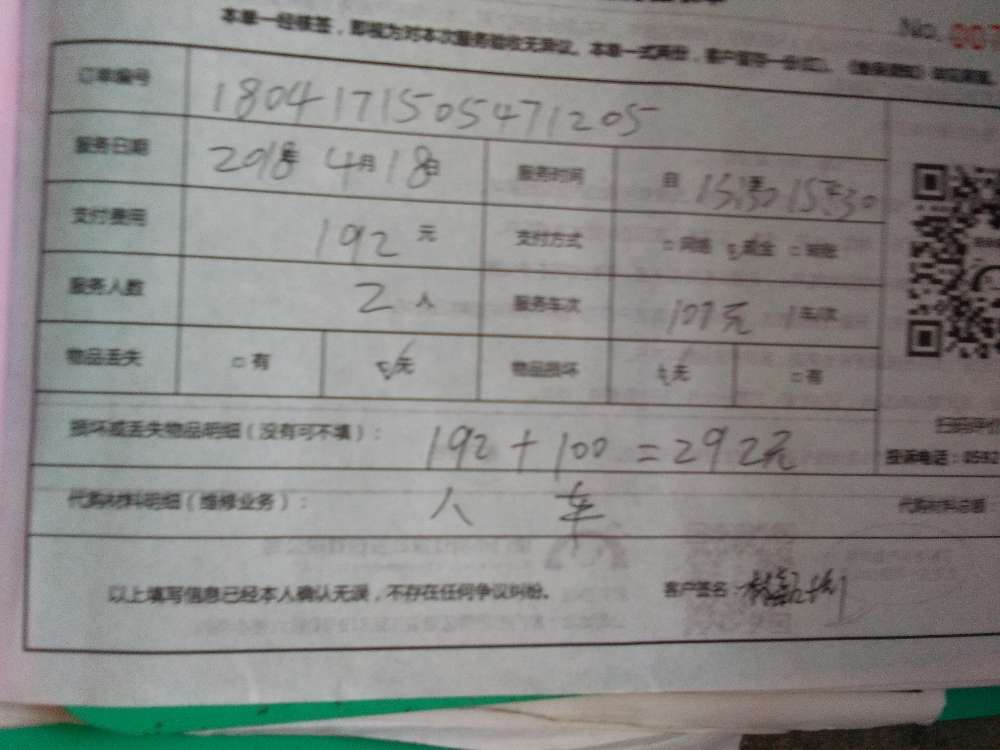 本单一经核签，即视为对本次服务验收无异议。本单一式两份，客户留存一份
No. 007
订单编号 1804171505471205
服务日期 2018年 4月18日 服务时间 自
支付费用 192 元 支付方式 □网络 现金 □转账
服务人数 2 人 服务车次 1车/次
物品丢失 □有 无 物品损坏 无 □有
损坏或丢失物品明细（没有可不填）： 192+100=292元
扫码评价
投诉电话：0592
代购材料明细（维修业务）： 人 车 代购材料总额：
以上填写信息已经本人确认无误，不存在任何争议纠纷。 客户签名：